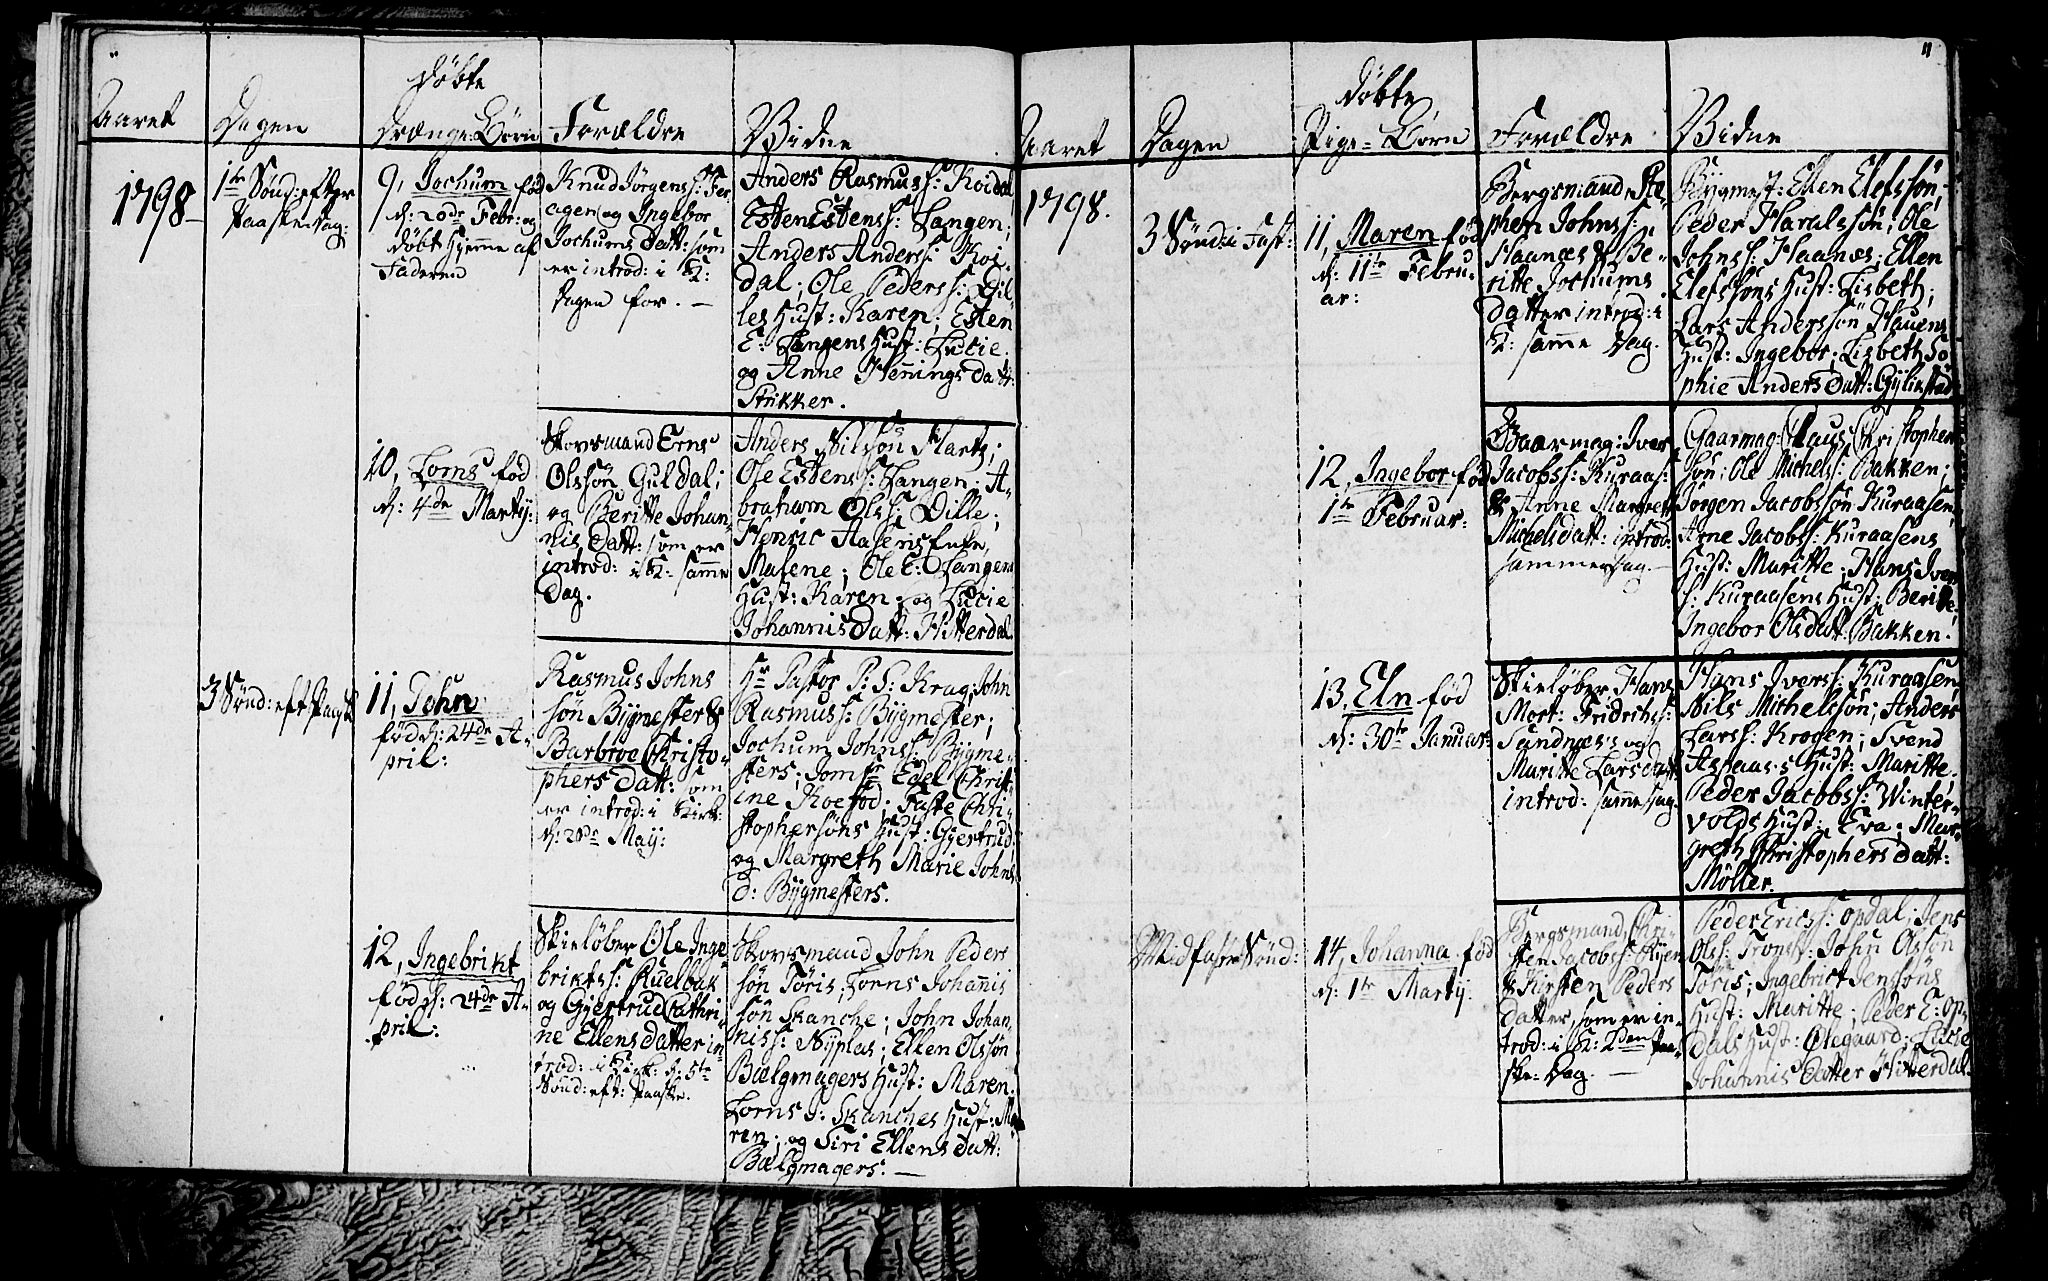 Aaret
Dagen
Døbte
Drænge-Børn
Forældre
Vidne
1798
1te Sønd: efter
Paaskedag:
9, Jochum fød
d: 20de Febr: og
døbt hjeme af
Faderen
Knud Jørgens:
og Ingebor
Jochums Datt: som
er introd: i K:
Dagen for. —
Anders Rasmuss: Koidal
Esten Estenss: Langen;
Anders Anderss: Koi-
dal; Ole Pederss: Dil-
les Hust: Karen; Esten
E: Langens Hust: Lucie
og Anne Hennings datt:
Strikker.
10, Lorns fød
d: 4de Martij:
Skovsmand Erns
Olssøn Guldal;
og Beritte Johan
nis Datt: som er
introd: i K: samme
Dag.
Anders Nilssøn Hartz;
Ole Estenss: Langen; A-
braham Olss: Dille;
Henric Aasens Enke,
Malene; Ole E: Langens
Hust: Karen; og Lucie
Johannis Datt: Hitterdal.
3 Sønd: eft Paaske
11, John
fød d: 24de A-
pril:
Rasmus Johns
søn Bygmester &
Barbroe Christo-
phers Datt: som
er introd: i Kirk:
d: 28de Maij:
Hr Pastor P: S: Krag; John
Rasmuss: Bygmester;
Jochum Johnss: Bygme-
sters; Jomfr Edel Chrif-
ine Koefod; Faste Chri-
stophersøns Hust: Gjertrud;
og Margreth Marie Johns
D: Bygmesters.
12, Ingebrikt
fød d: 24de A-
pril:
Skieløber Ole Inge
briktss: Ruelbak
og Gjertrud Cathri-
ne Ellens datter in-
trod: i Kirk: d: 5te
Sønd: eft: Paaske.
Skovsmand John Peders
søn Töris; Lorns Johannis
søn Skanche; John Johan-
niss: Nyplas; Ellen Olssøn
Bælgmagers Hust: Maren.
Lorns J: Skanches Hust: Ma
ren; og Siri Ellens Datt:
Bælgmagers. —
11
Aaret
Dagen
Døbte
Pige-Børn
Forældre
Vidne
1798.
3 Sønd: i Fast:
11, Maren fød
d: 11te Febru-
ar:
Bergsmand Ste
phen Johnss:
Haanæs & Be-
ritte Jochums
Datter introd: i
K: samme Dag.
Bygmest: Ellen Elefssøn;
Peder Haralssøn; Ole
Johnss: Haanæs; Ellen
Elefssøns Hust: Lisbeth;
Lars Anderssøn Hauens
Hust: Ingebor; Lisbeth So
phie Anders Datt:
12, Ingebor fød
1te Februar:
Gaarmag: Iver
Jacobss: Kuraas:
& Anne Margreth
Michels datt: introd:
sammedag. —
Gaarmag: Claus Christopher
søn; Ole Michelss: Bakken;
Jørgen Jacobssøn Kuraasen;
Arne Jacobss: Kuraasens
Hust: Maritte; Hans Iver
s: Kuraasens Hust: Beritte
Ingebor Ols datt: Bakken.
13, Eln fød
d: 30te Januar:
Skieløber Hans
Mort: Fridrichs:
Sundnæss og
Maritte Lars datt:
introd: samme dag.
Hans Iverss: Kuraasen;
Nils Michelssøn; Anders
Larss: Krogen; Svend
Aspaas's Hust: Maritte.
Peder Jacobss: Winter-
volds Hust: Eva; Mar-
greth Christophers datt:
Møller.
Midfaste Sønd:
14, Johanna fød
d: 1te Martij:
Bergsmand Chri-
sten Jacobss: Ryen
& Kirsten Peders
Datter, som er in-
trod: i K: 2den Paa-
ske-Dag. —
Peder Ericss: Opdal; Jens
Olss: Tronsf: John Olssøn
Töris; Ingebrict Jenssøns
Hust: Maritte; Peder E: Op-
dals Hust: Olegaard; Lucie
Johannis Datter Hitterdal.